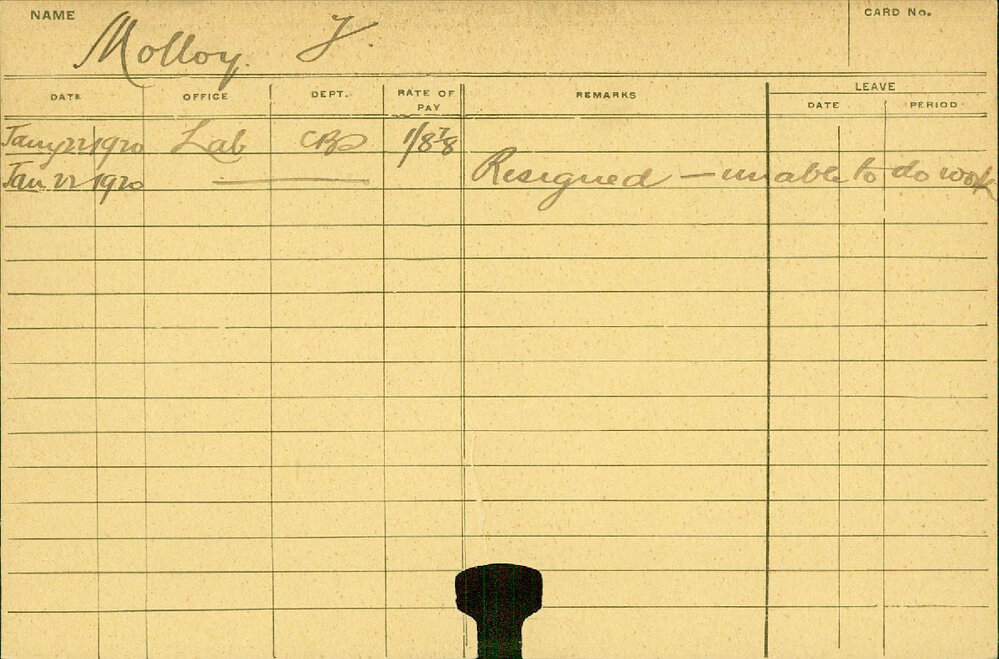 NAME Molloy J CARD No.
DATE OFFICE DEPT. RATE OF PAY REMARKS LEAVE
DATE PERIOD
Jany 22 1920 Lab 1/8 7/8
Jan 22 1920 Resigned — unable to do work